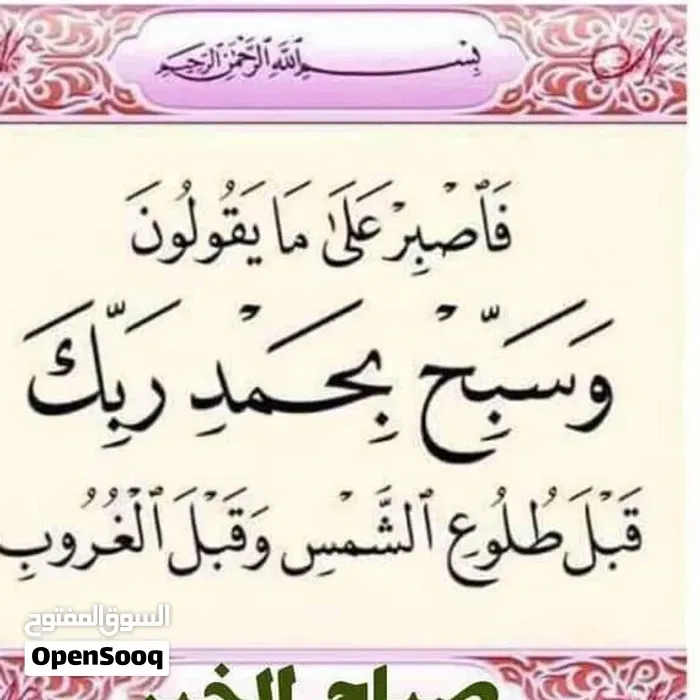 بِسْمِ اللَّهِ الرَّحْمَٰنِ الرَّحِيمِ
فَٱصْبِرْ عَلَىٰ مَا يَقُولُونَ
وَسَبِّحْ بِحَمْدِ رَبِّكَ
قَبْلَ طُلُوعِ ٱلشَّمْسِ وَقَبْلَ ٱلْغُرُوبِ
السوق المفتوح
OpenSooq
صباح الخير